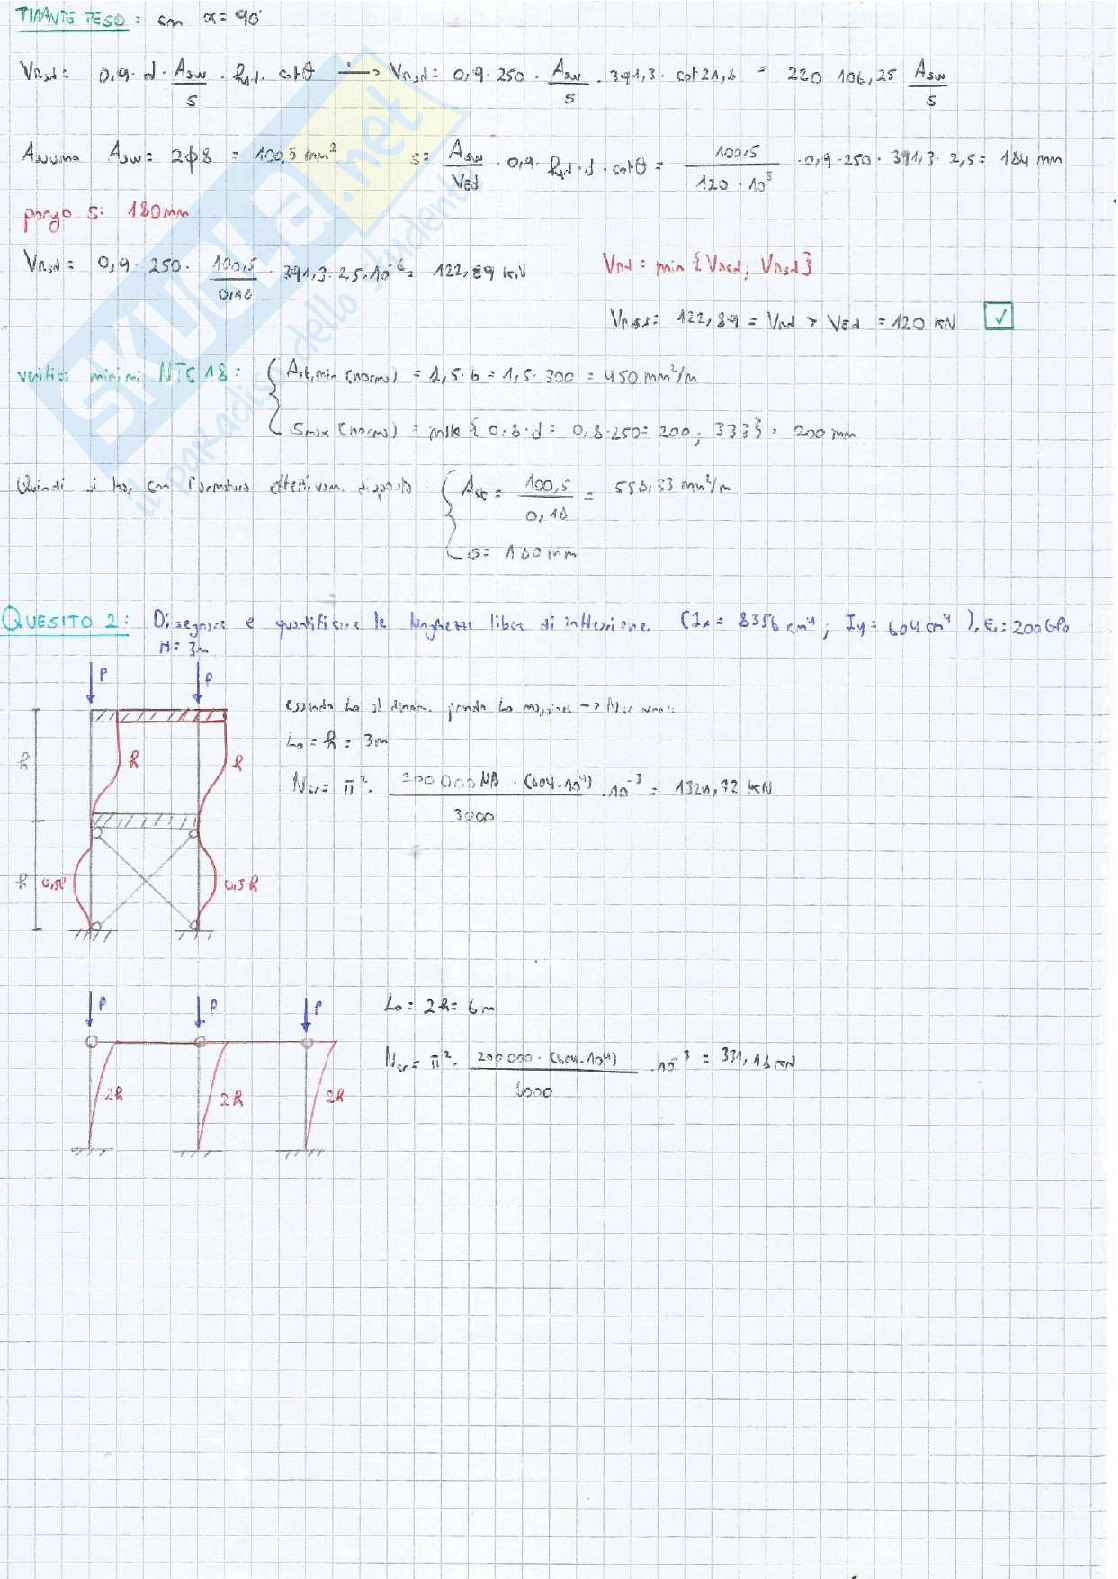 TIRANTE TESO: con α = 90°
VRsd = 0,9 · d · Asw/s · fyd · cotθ → VRsd = 0,9 · 250 · Asw/s · 391,3 · cot 21,8 = 220 106,25 Asw/s
Assumo Asw = 2φ8 = 100,5 mm² s = Asw/VEd · 0,9 · fyd · d · cotθ = 100,5/120 · 10³ · 0,9 · 250 · 391,3 · 2,5 = 184 mm
pongo s = 180 mm
VRsd = 0,9 · 250 · 100,5/0,18 · 391,3 · 2,5 · 10⁻⁶ = 122,89 kN VRd = min {VRcd; VRsd}
VRsd = 122,89 = VRd > VEd = 120 kN ✓
verifica minimi NTC 18: { Ast,min (norma) = 1,5 · b = 1,5 · 300 = 450 mm²/m
smax (norma) = min { 0,8 · d = 0,8 · 250 = 200; 333 } = 200 mm
Quindi si ha, con l'armatura effettivam. disposta { Ast = 100,5/0,18 = 558,33 mm²/m
s = 180 mm
QUESITO 2: Disegnare e quantificare le lunghezze libere di inflessione. (Ix = 8356 cm⁴; Iy = 604 cm⁴), E = 200 GPa
H = 3m
P P
h h h
L0 = h = 3m
Ncr = π² · 200 000 MPa · (604 · 10⁴)/3000 · 10⁻³ = 1324,72 kN
h 0,5h 0,5h
P P P
L0 = 2h = 6m
Ncr = π² · 200 000 · (604 · 10⁴)/6000 · 10⁻³ = 331,18 kN
2h 2h 2h
SKUOLA.net
il paradiso dello studente